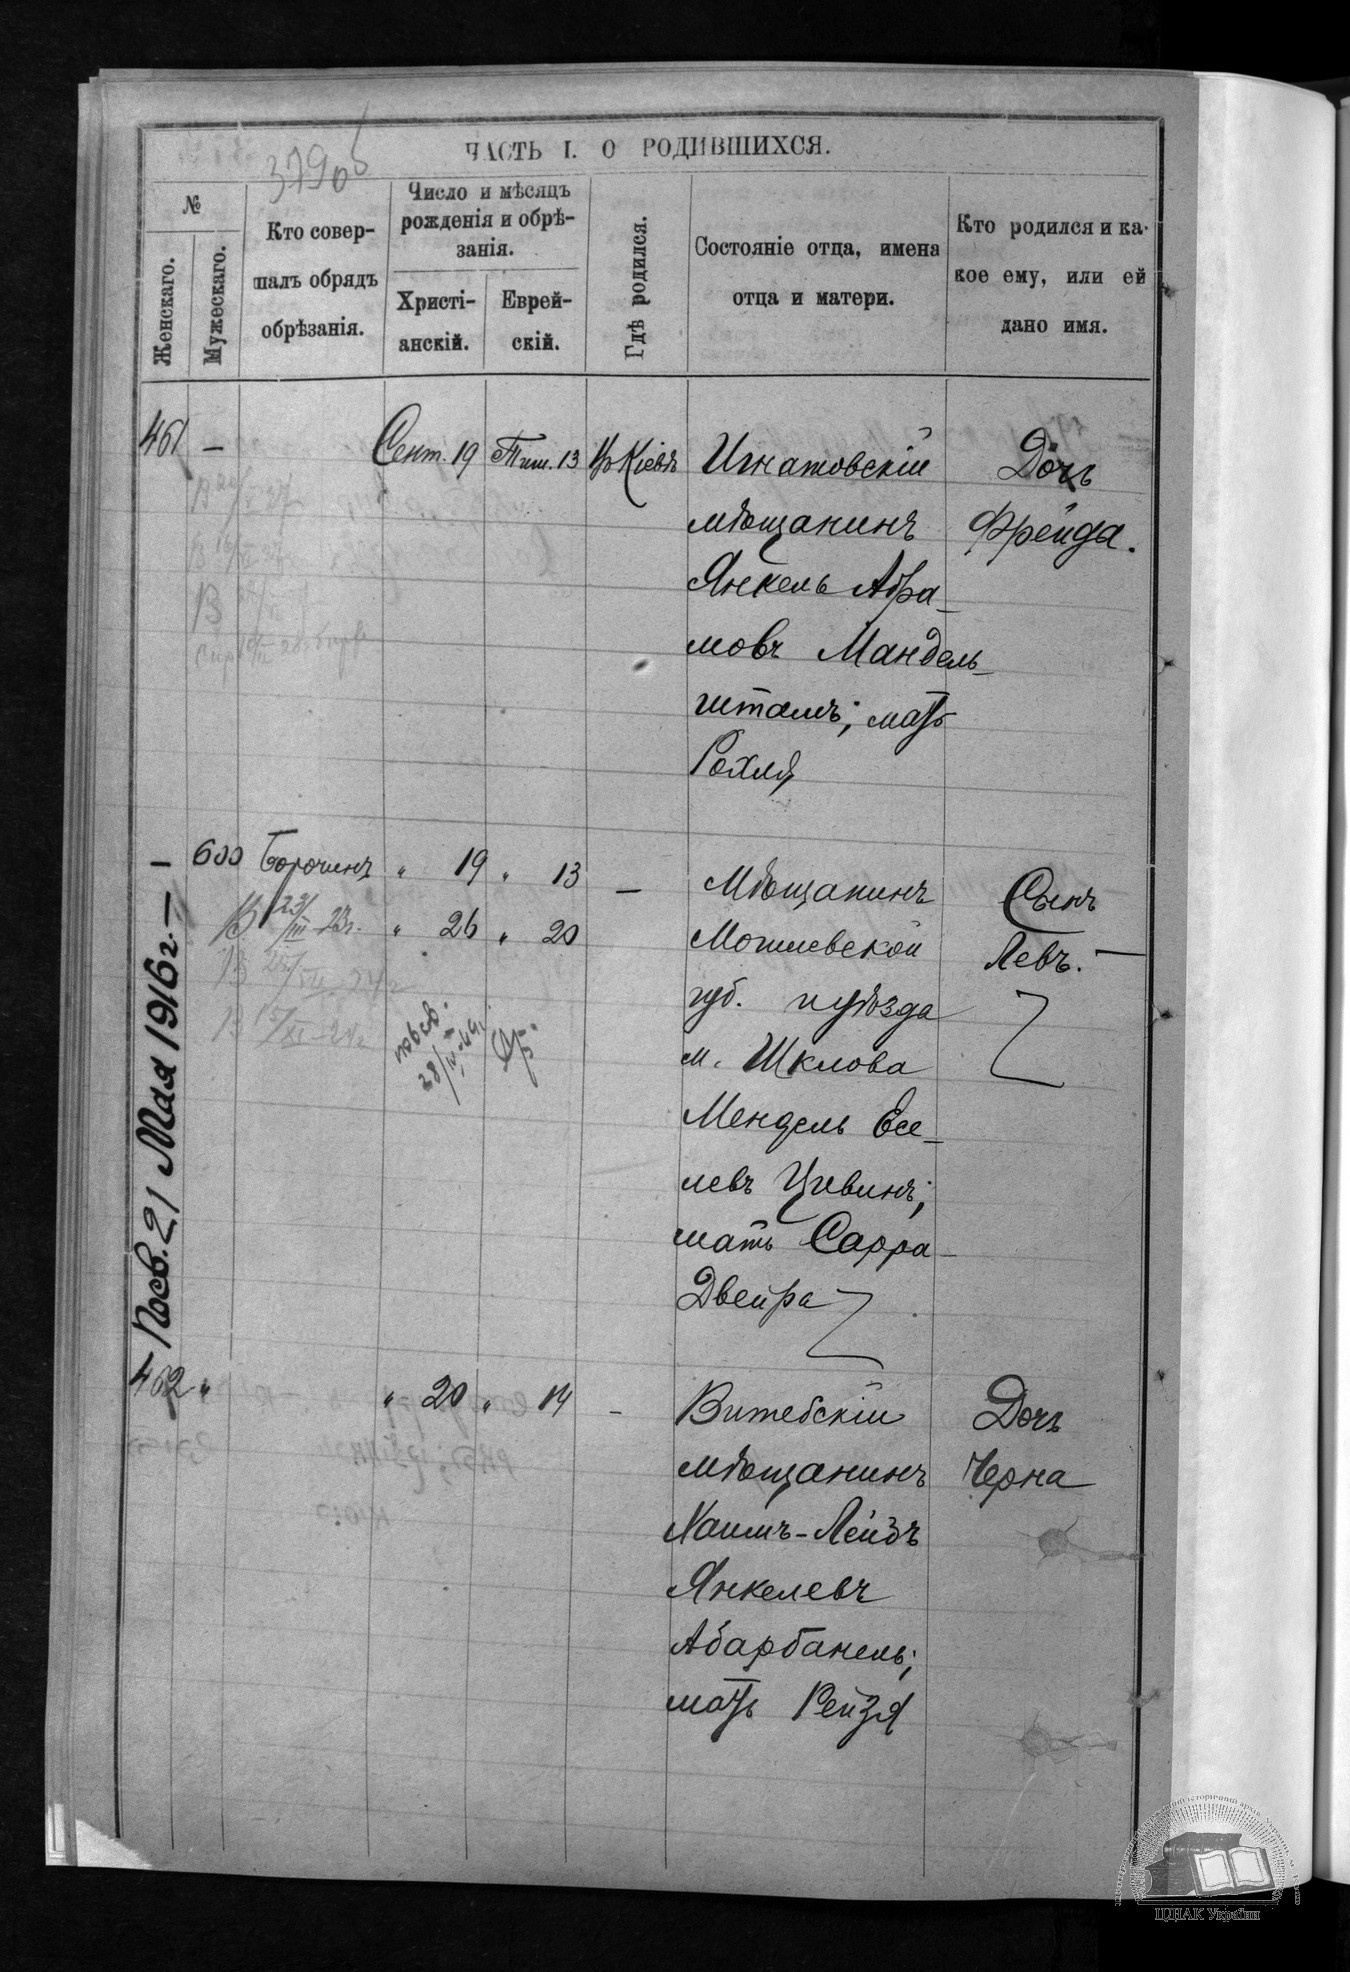 379об
ЧАСТЬ I. О РОДИВШИХСЯ.
№
Женскаго.
Мужескаго.
Кто совер-
шалъ обрядъ
обрѣзанія.
Число и мѣсяцъ
рожденія и обрѣ-
занія.
Христі-
анскій.
Еврей-
скій.
Гдѣ родился.
Состояніе отца, имена
отца и матери.
Кто родился и ка-
кое ему, или ей
дано имя.
461 — Сент. 19 Тиш. 13 Въ Кіевѣ
Игнатовскій
мѣщанинъ
Янкель Абра-
мовъ Мандель-
штамъ; мать
Рохля
Дочь
Фрейда.
600 „ 19 „ 13 —
„ 26 „ 20
Мѣщанинъ
Могилевской
губ. и уѣзда
м. Шклова
Мендель Есе-
левъ Цивинъ;
мать Сарра-
Двейра
Сынъ
Левъ. —
— Посв. 21 Мая 1916 г. — I
462 „ „ 20 „ 14 -
Витебскій
мѣщанинъ
Хаимъ-Лейбъ
Янкелевъ
Абарбанель;
мать Рейзя
Дочь
Черна
ЦДІАК України